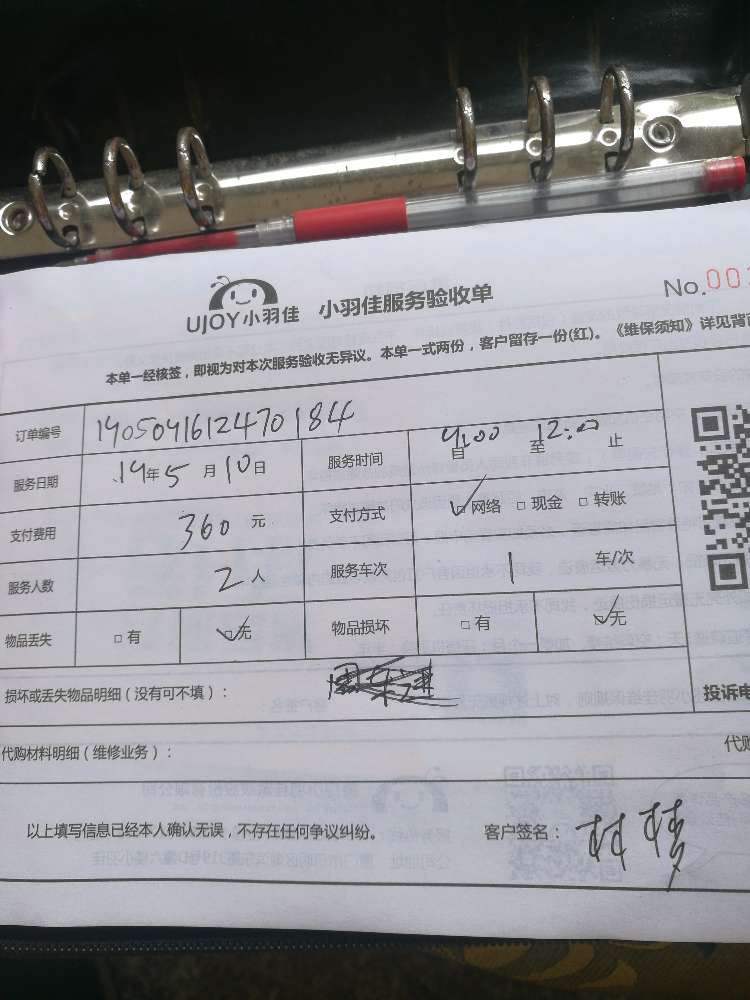 UJOY小羽佳 小羽佳服务验收单 No.003
本单一经核签，即视为对本次服务验收无异议。本单一式两份，客户留存一份(红)。《维保须知》详见背
订单编号 19050416124470184
服务日期 19年5月10日 服务时间 自9:00至12:00止
支付费用 360元 支付方式 网络 现金 转账
服务人数 2人 服务车次 1 车/次
物品丢失 有 无 物品损坏 有 无
损坏或丢失物品明细（没有可不填）： 投诉电
代购材料明细（维修业务）： 代购
以上填写信息已经本人确认无误，不存在任何争议纠纷。 客户签名：